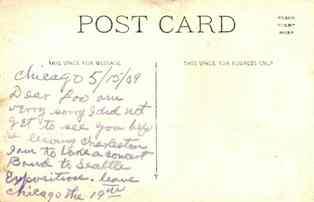 POST CARD
PLACE
STAMP
HERE
THIS SPACE FOR MESSAGE
THIS SPACE FOR ADDRESS ONLY
Chicago 5/15/09
Dear
very sorry I did not
get to see you
leaving Charleston
I am to take a concert
Band to Seattle
Exposition. leave
Chicago the 19th